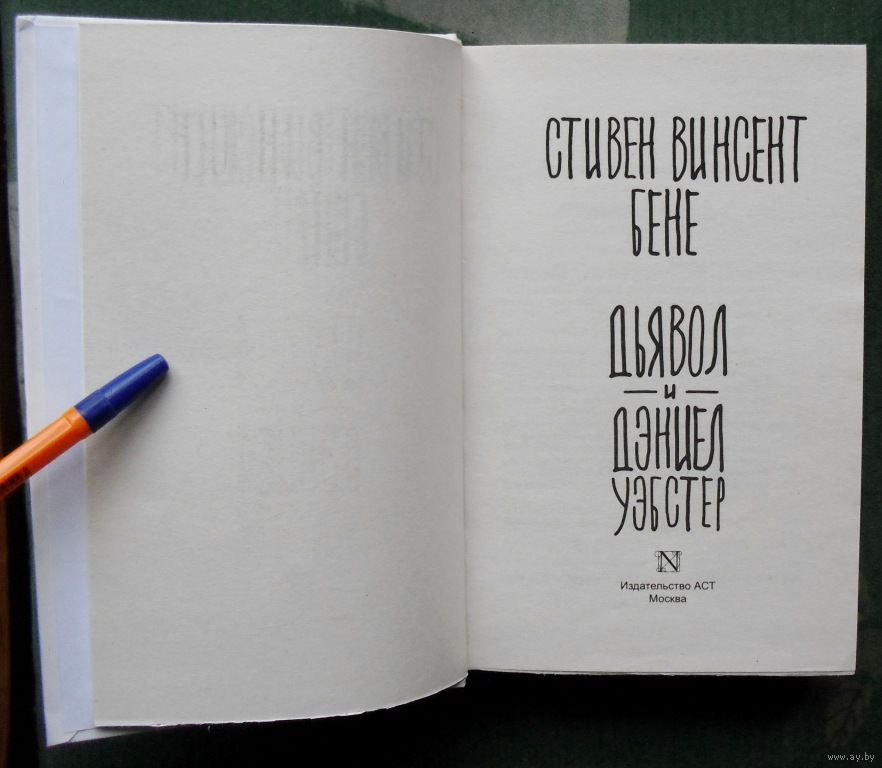 СТИВЕН ВИНСЕНТ
БЕНЕ
ДЬЯВОЛ
— и —
ДЭНИЕЛ
УЭБСТЕР
N
Издательство АСТ
Москва
www.ay.by